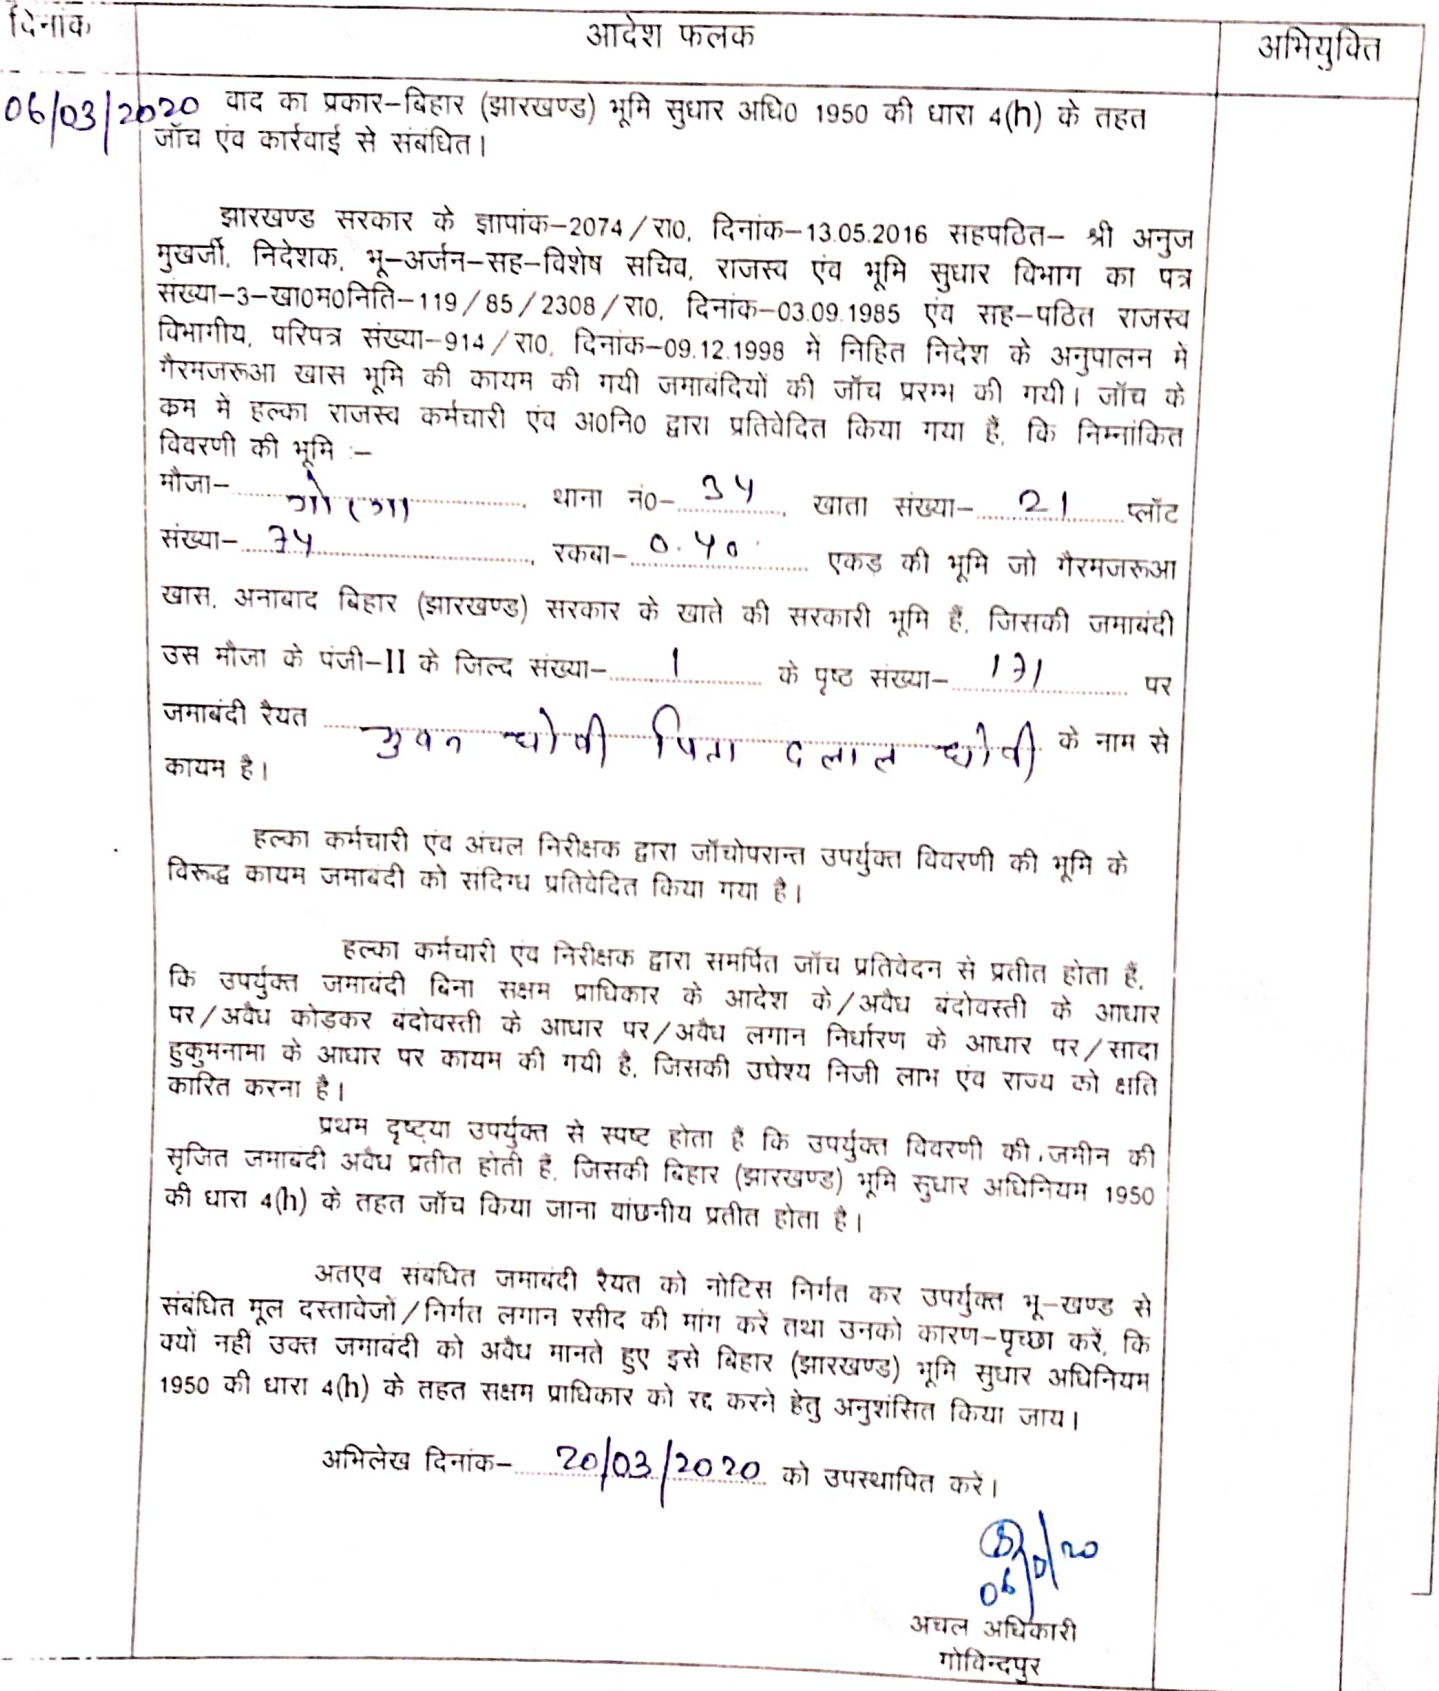 दिनांक आदेश फलक अभियुक्ति
06/03/2020 वाद का प्रकार–बिहार (झारखण्ड) भूमि सुधार अधि0 1950 की धारा 4(h) के तहत
जॉच एंव कार्रवाई से संबंधित।
झारखण्ड सरकार के ज्ञापांक–2074/रा0, दिनांक–13.05.2016 सहपठित– श्री अनुज
मुखर्जी, निदेशक, भू–अर्जन–सह–विशेष सचिव, राजस्व एंव भूमि सुधार विभाग का पत्र
संख्या–3–खा0म0निति–119/85/2308/रा0, दिनांक–03.09.1985 एंव सह–पठित राजस्व
विभागीय, परिपत्र संख्या–914/रा0, दिनांक–09.12.1998 में निहित निदेश के अनुपालन में
गैरमजरूआ खास भूमि की कायम की गयी जमाबंदियों की जॉच प्ररम्भ की गयी। जॉच के
कम में हल्का राजस्व कर्मचारी एंव अ0नि0 द्वारा प्रतिवेदित किया गया हैं, कि निम्नांकित
विवरणी की भूमि :–
मौजा– थाना नं0– 34, खाता संख्या– 21 प्लॉट
संख्या– 74, रकबा– 0.40 एकड़ की भूमि जो गैरमजरूआ
खास, अनाबाद बिहार (झारखण्ड) सरकार के खाते की सरकारी भूमि हैं, जिसकी जमाबंदी
उस मौजा के पंजी–II के जिल्द संख्या– 1 के पृष्ट संख्या– 171 पर
जमाबंदी रैयत धोबी पिता दलाल धोबी के नाम से
कायम है।
हल्का कर्मचारी एंव अंचल निरीक्षक द्वारा जॉचोपरान्त उपर्युक्त विवरणी की भूमि के
विरूद्ध कायम जमाबंदी को संदिग्ध प्रतिवेदित किया गया है।
हल्का कर्मचारी एंव निरीक्षक द्वारा समर्पित जॉच प्रतिवेदन से प्रतीत होता हैं,
कि उपर्युक्त जमाबंदी बिना सक्षम प्राधिकार के आदेश के/अवैध बंदोवस्ती के आधार
पर/अवैध कोड़कर बंदोवस्ती के आधार पर/अवैध लगान निर्धारण के आधार पर/सादा
हुकुमनामा के आधार पर कायम की गयी है, जिसकी उघेश्य निजी लाभ एंव राज्य को क्षति
कारित करना है।
प्रथम दृष्ट्या उपर्युक्त से स्पष्ट होता हैं कि उपर्युक्त विवरणी की जमीन की
सृजित जमाबंदी अवैध प्रतीत होती है, जिसकी बिहार (झारखण्ड) भूमि सुधार अधिनियम 1950
की धारा 4(h) के तहत जॉच किया जाना वांछनीय प्रतीत होता है।
अतएव संबंधित जमाबंदी रैयत को नोटिस निर्गत कर उपर्युक्त भू–खण्ड से
संबंधित मूल दस्तावेजों/निर्गत लगान रसीद की मांग करें तथा उनको कारण–पृच्छा करें, कि
क्यों नहीं उक्त जमाबंदी को अवैध मानते हुए इसे बिहार (झारखण्ड) भूमि सुधार अधिनियम
1950 की धारा 4(h) के तहत सक्षम प्राधिकार को रद्द करने हेतु अनुशंसित किया जाय।
अभिलेख दिनांक– 20/03/2020 को उपस्थापित करें।
अंचल अधिकारी
गोविन्दपुर